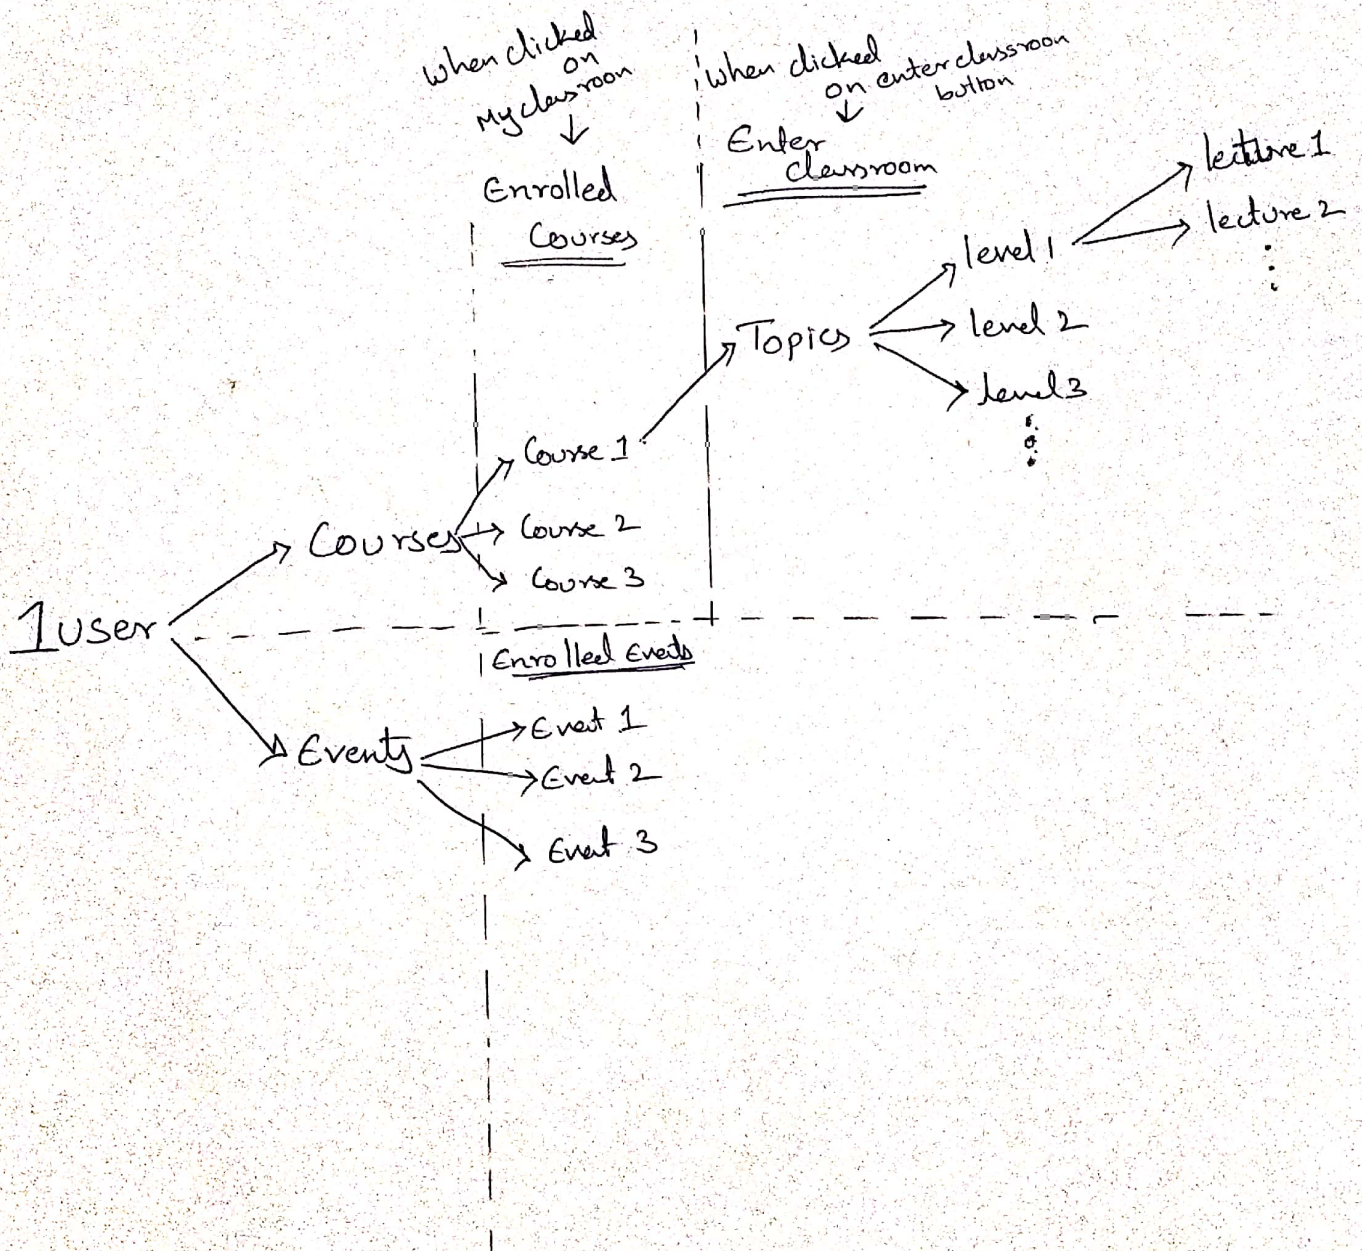 when clicked
on
My classroon
Enrolled
Courses
when clicked
on enter classroon
button
Enter
classroom
lectture 1
lecture 2
level 1
level 2
level 3
Topics
Course 1
Course 2
Course 3
Courses
1 user
Enrolled Events
Events
Event 1
Event 2
Event 3